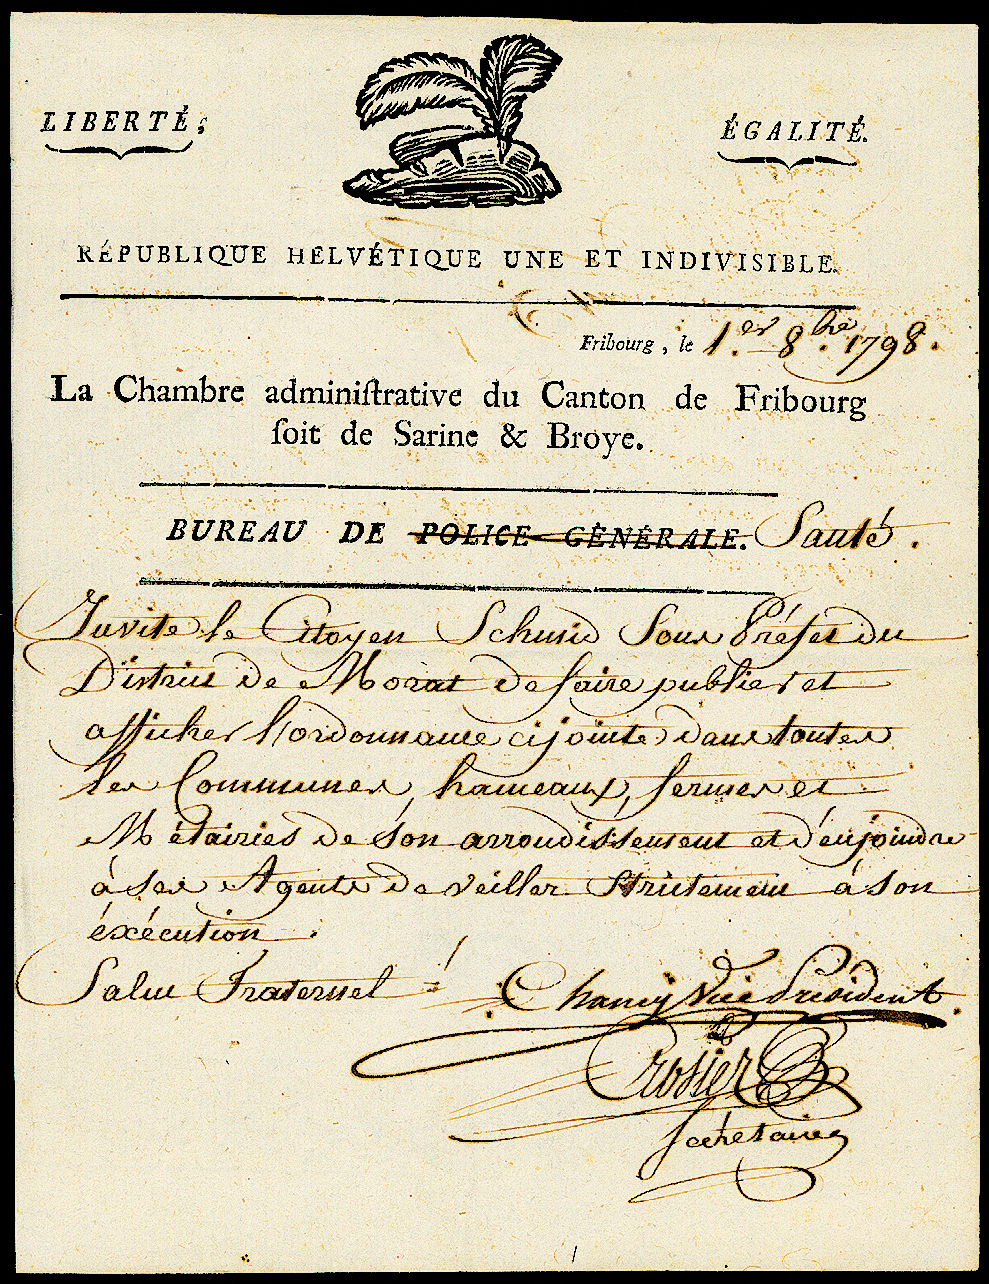 LIBERTÉ;
ÉGALITÉ.
RÉPUBLIQUE HELVÉTIQUE UNE ET INDIVISIBLE.
Fribourg, le 1.er 8.bre 1798.
La Chambre adminiſtrative du Canton de Fribourg
ſoit de Sarine & Broye.
BUREAU DE POLICE GÉNÉRALE. Santé.
Invite le Citoyen Schmid Sous Préfet du
District de Morat de faire publier et
afficher l'ordonnance cijointe dans toutes
les Communes, hameaux, fermes et
Métairies de son arrondissement et d'enjoindre
à ses Agents de veiller strictement à son
éxécution.
Salut Fraternel!
Chaney Vice Président.
Crosier
Secrétaire